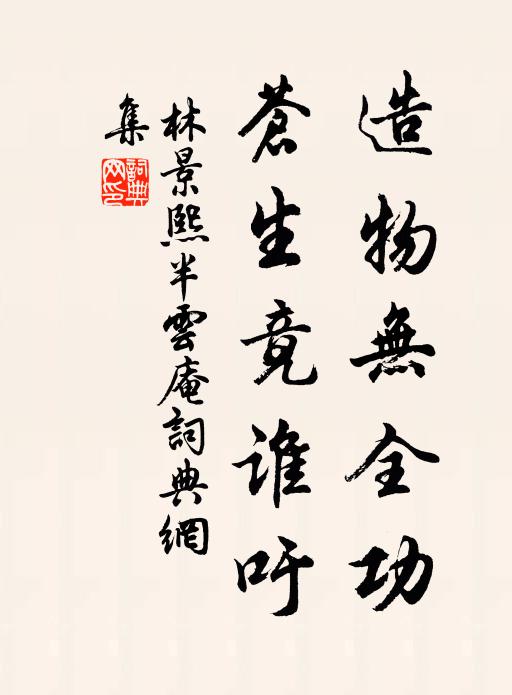 造物無全功
蒼生竟誰吁
林景熙半雲庵詞典網
集
詞典網印